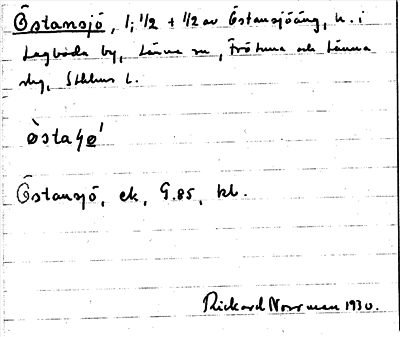 Östansjö, 1; 1/2 + 1/2 av Östansjöäng, h. i
Lagboda by, Länna sn, Frötuna och Länna
skg, Sthlms l.
Östansjö, ek, G.85, kl.
Rickard Norrman 1930.